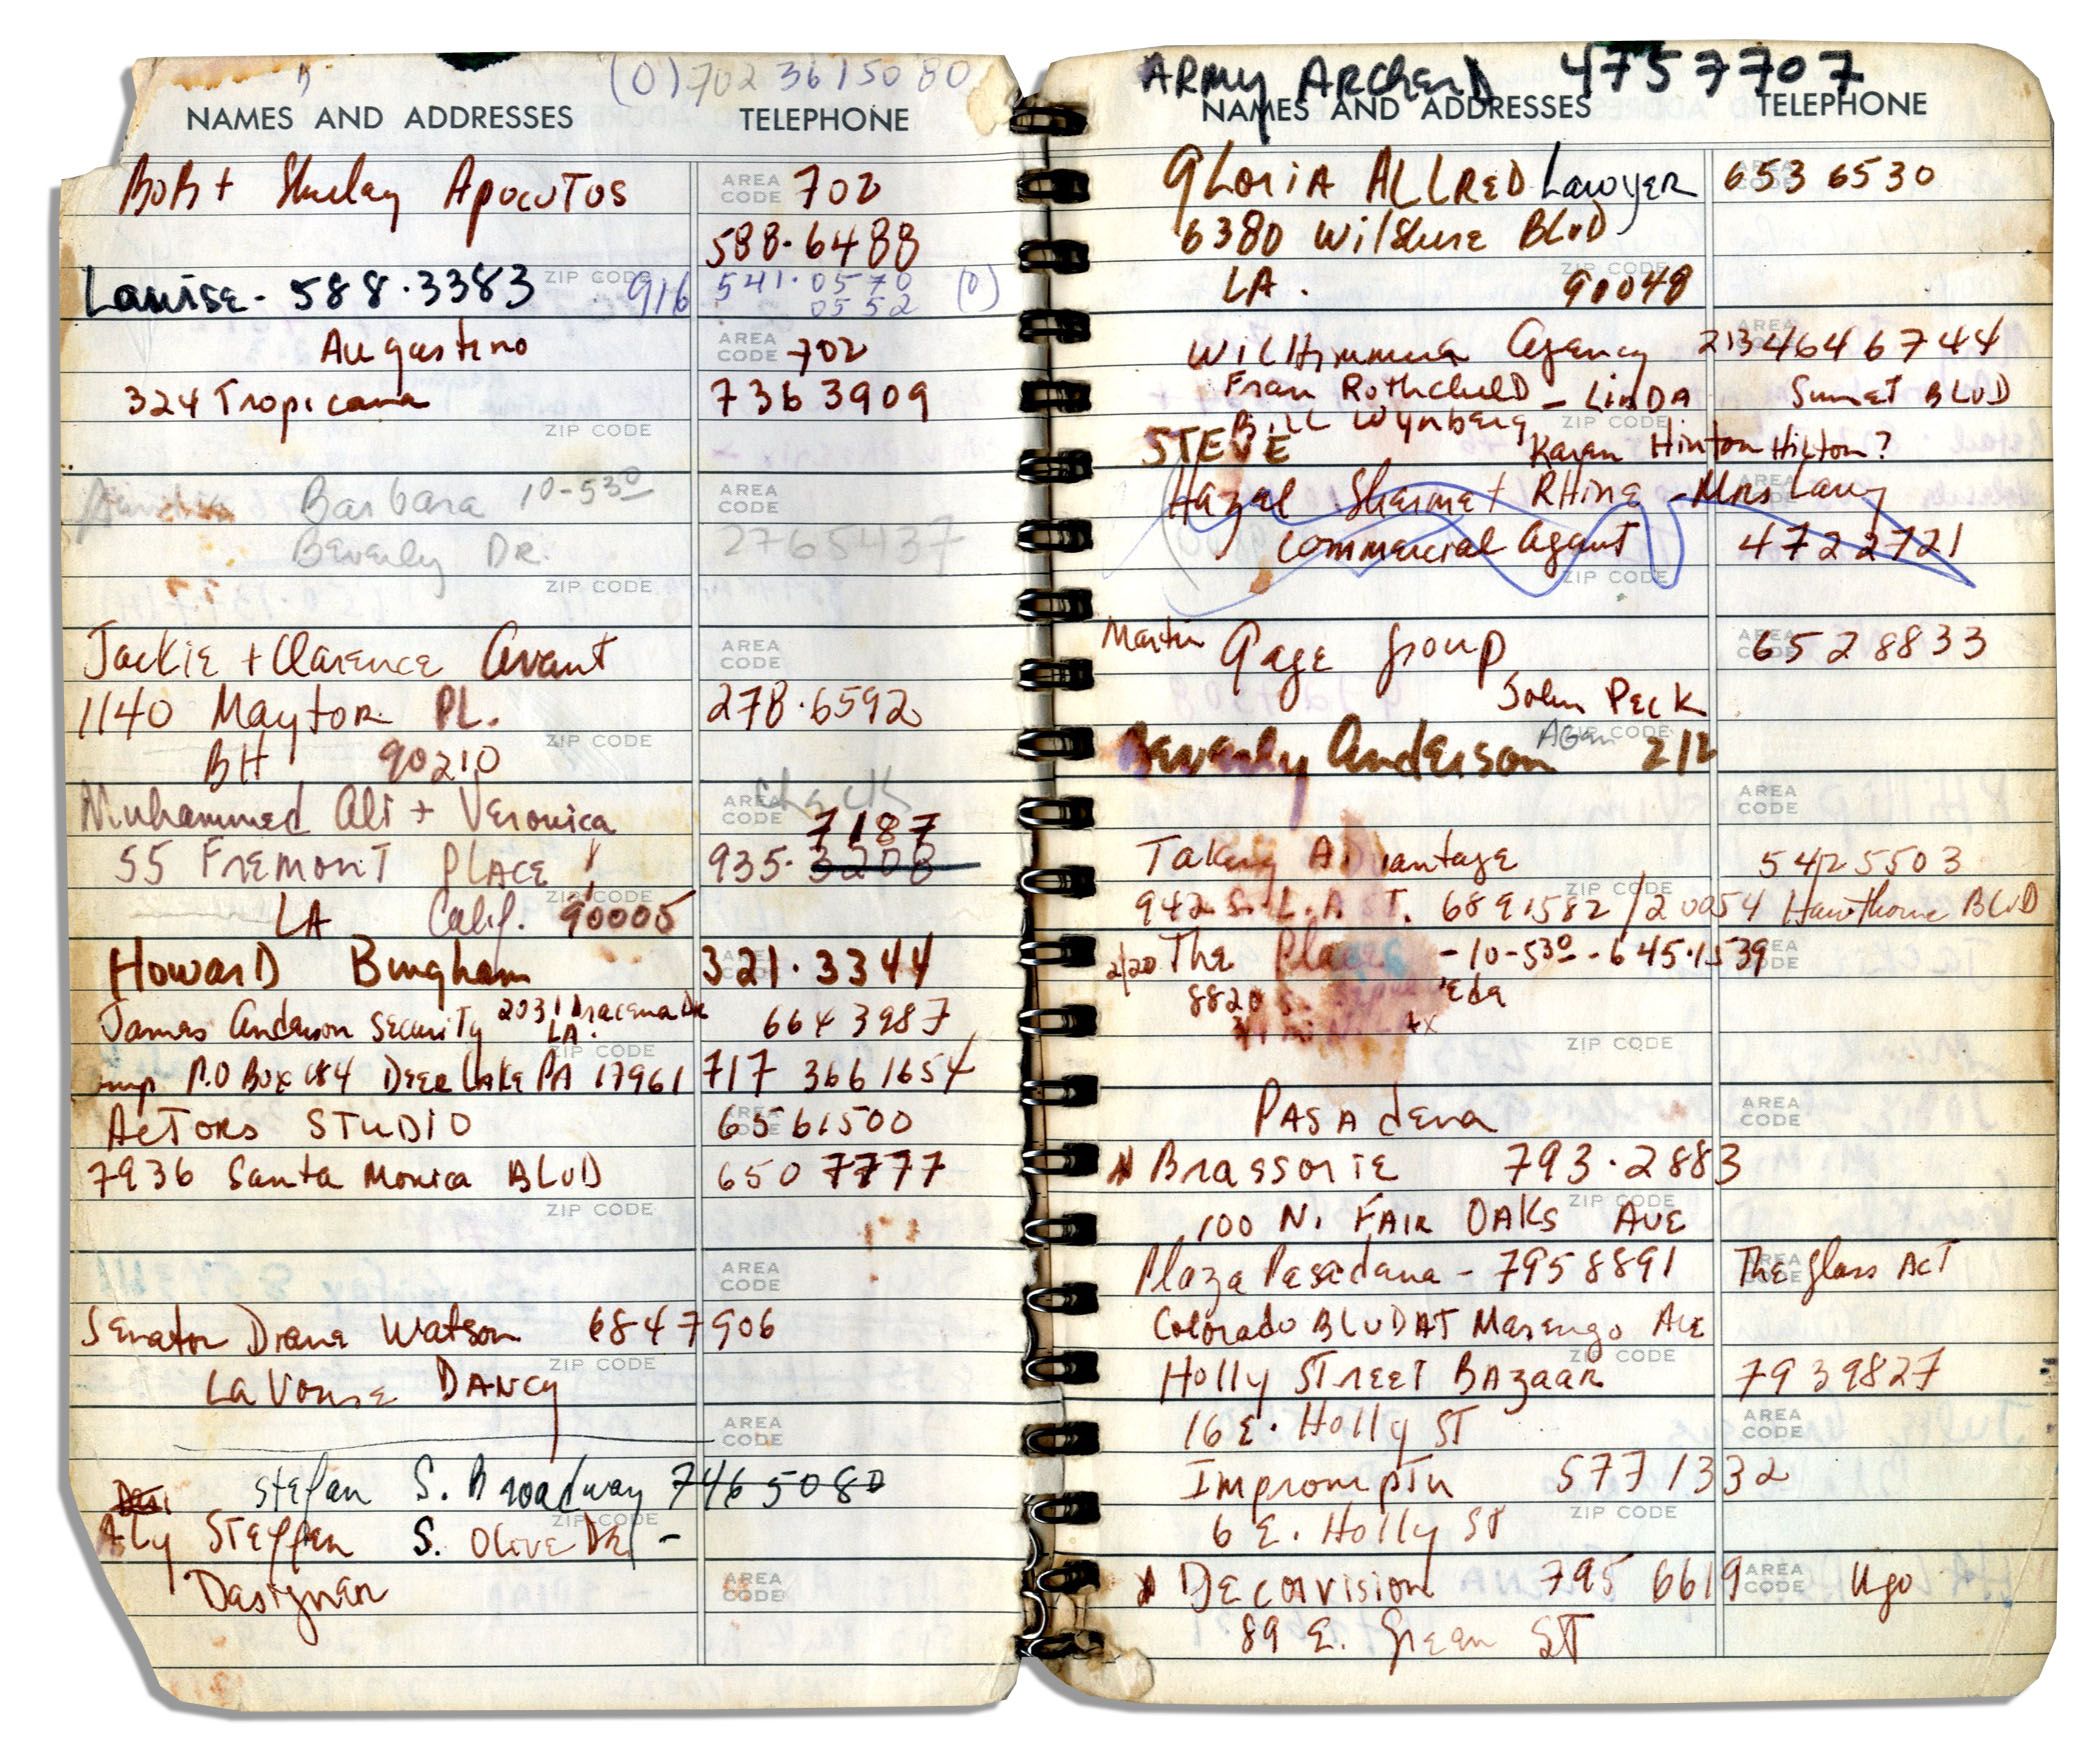 (0) 702 361 5080
NAMES AND ADDRESSES TELEPHONE
BOB + Shirley APOCOTOS AREA CODE 702
588·6488
Louise - 588·3383 ZIP CODE 916 541·0570
0552 (0)
Augustino AREA CODE 702
324 Tropicana 736 3909
ZIP CODE
Barbara 10-530 AREA CODE
Beverly DR. 2765437
ZIP CODE
Jackie + Clarence Avant AREA CODE
1140 Maytor PL. 278·6592
BH 90210 ZIP CODE
check
Muhammed Ali + Veronica AREA CODE 7187
55 FREMONT PLACE 935·3208
LA Calif. 90005 ZIP CODE
Howard Bingham AREA CODE 321·3344
James Anderson Security 2031 Dracena DR LA. 664 3987
ZIP CODE
P.O BOX 184 DEER LAKE PA 17961 717 366 1654
ACTORS STUDIO AREA CODE 656 1500
7936 Santa Monica BLVD 650 7777
ZIP CODE
AREA CODE
Senator Diane Watson 684 7906
ZIP CODE
LaVonse DANCY
AREA CODE
Stefan S. Broadway 746 5080
Aly STEFFEN S. OLIVE DR -
ZIP CODE
Designer AREA CODE
ARMY ARCHERD 4757707
NAMES AND ADDRESSES TELEPHONE
GLORIA ALLRED Lawyer AREA CODE 653 6530
6380 Wilshire BLVD
LA. 90048 ZIP CODE
Wilhimmena Agency AREA CODE 213 464 6744
Fran Rothcheld - LINDA Sunset BLVD
Bill Wynberg ZIP CODE
STEVE Karen Hinton Hilton?
Hazel Sherme + RHINE - Mrs Lary AREA CODE
commercial Agent 472 2721
ZIP CODE
Martin Gage Group AREA CODE 652 8833
John PECK
Beverly Anderson Agen ZIP CODE 212
AREA CODE
Taking Advantage 542 5503
942 S. L.A ST. 689 1582 / 20054 Hawthorne BLVD
ZIP CODE
2/20 The Place - 10-530 - 645·1539 AREA CODE
8820 S.
ZIP CODE
PASAdena AREA CODE
Brassorie 793·2883
ZIP CODE
100 N. FAIR OAKS AVE
Plaza Pasadena - 795 8891 The Glass ACT AREA CODE
Colorado BLVD AT Marengo AVE
ZIP CODE
Holly STREET BAZaar 793 9827
16 E. Holly ST AREA CODE
Impromptu 577 1332
6 E. Holly ST ZIP CODE
Decorvision 795 6619 AREA CODE Ugo
89 E. Green ST